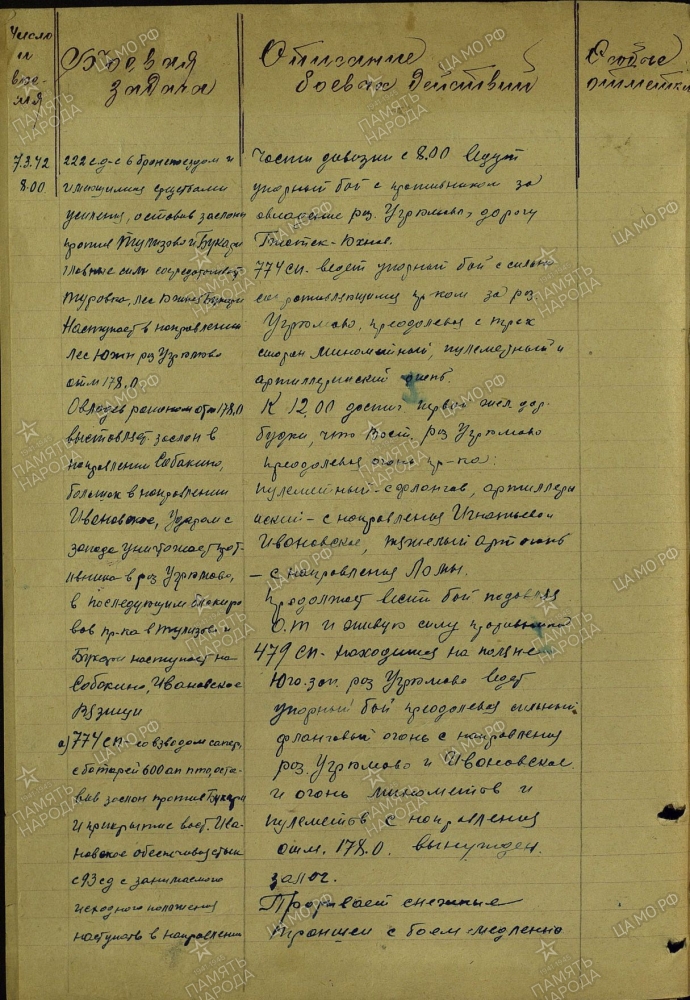 Число
и
вре-
мя
Боевая
задача
Описание
боевых действий
Особые
отметки
7.3.42
8.00
222 с.д-с бронепоездом и
имеющимися средствами
усиления, оставив заслоны
против Тулизово и Букари
главные силы сосредоточивает
Туровка, лес
Наступает в направлении
лес южн роз Угрюмово
отм 178.0.
Овладев районом отм 178.0
выставляет заслон в
направлении Собакино,
большак в направлении
Ивановское, ударом с
запада уничтожает прот-
ивника в роз Угрюмово,
в последующим блокиро
вав пр-ка в Тулизово и
Букари наступает на
Собакино, Ивановское
Вязищи
а) 774 сп-со взводом сапер,
с батарей 600 ап пто, оста-
вив заслон против Букари
и прикрытие вост. Ива-
новское обеспечивая стык
с 93 сд с занимаемого
исходного положения
наступать в направлении
Части дивизии с 8.00 ведут
упорный бой с противником за
овладение роз. Угрюмово, дорогу
774 сп- ведет упорный бой с сильно
сопротивляющимся пр-ком за роз.
Угрюмово, преодолевая с трех
сторон минометный, пулеметный и
артиллерийский огонь.
К 12.00 достиг первой жел дор
будки, что вост. роз Угрюмово
преодолевая огонь пр-ка:
пулеметный-с флангов, артиллери
йский - с направления Игнатьево и
Ивановское, тяжелый арт огонь
- с направления Ломы.
Продолжает вести бой подавляя
О.Т и живую силу противника
479 сп- находится на поляне
Юго. зап. роз Угрюмово ведет
упорный бой преодолевая сильный
фланговый огонь с направления
роз. Угрюмово и Ивановское.
и огонь минометов и
пулеметов с направления
отм. 178.0. вынужден.
залог.
Прорывает снежные
траншеи с боем медленно
ПАМЯТЬ
НАРОДА
ЦАМО.РФ